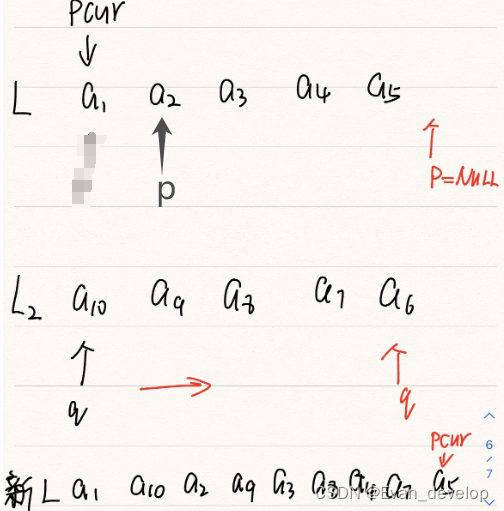 pcur
L a₁ a₂ a₃ a₄ a₅
p
P=NULL
L₂ a₁₀ a₉ a₈ a₇ a₆
q
q
pcur
6
/
7
新 L a₁ a₁₀ a₂ a₉ a₃ a₈ a₄ a₇ a₅
CSDN @Evan_develop